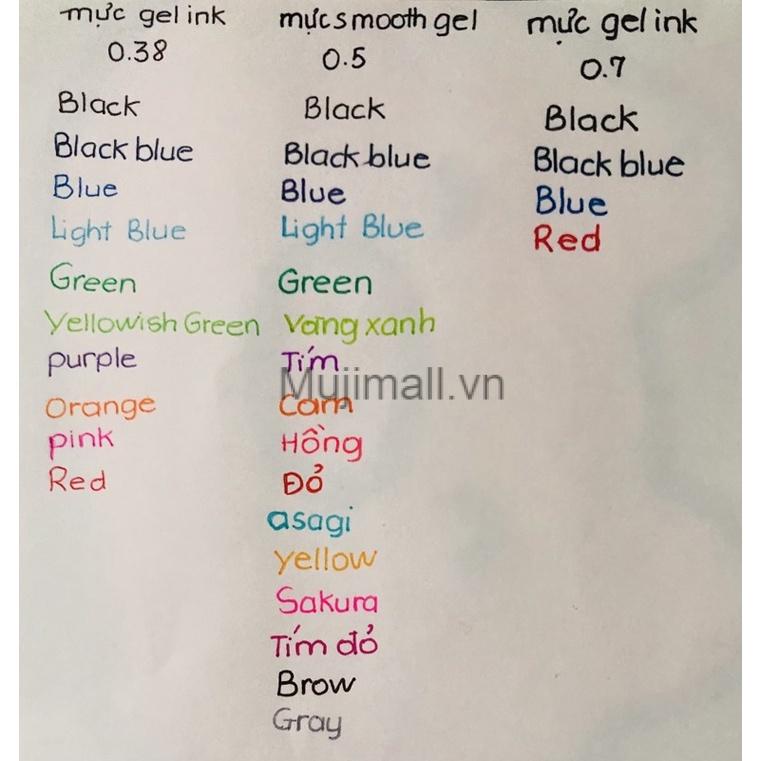 mực gel ink
0.38
Black
Black blue
Blue
Light Blue
Green
Yellowish Green
purple
Orange
pink
Red
mực smooth gel
0.5
Black
Black blue
Blue
Light Blue
Green
Vàng xanh
Tím
Cam
Hồng
Đỏ
asagi
yellow
Sakura
Tím đỏ
Brow
Gray
mực gel ink
0.7
Black
Black blue
Blue
Red
Mujimall.vn